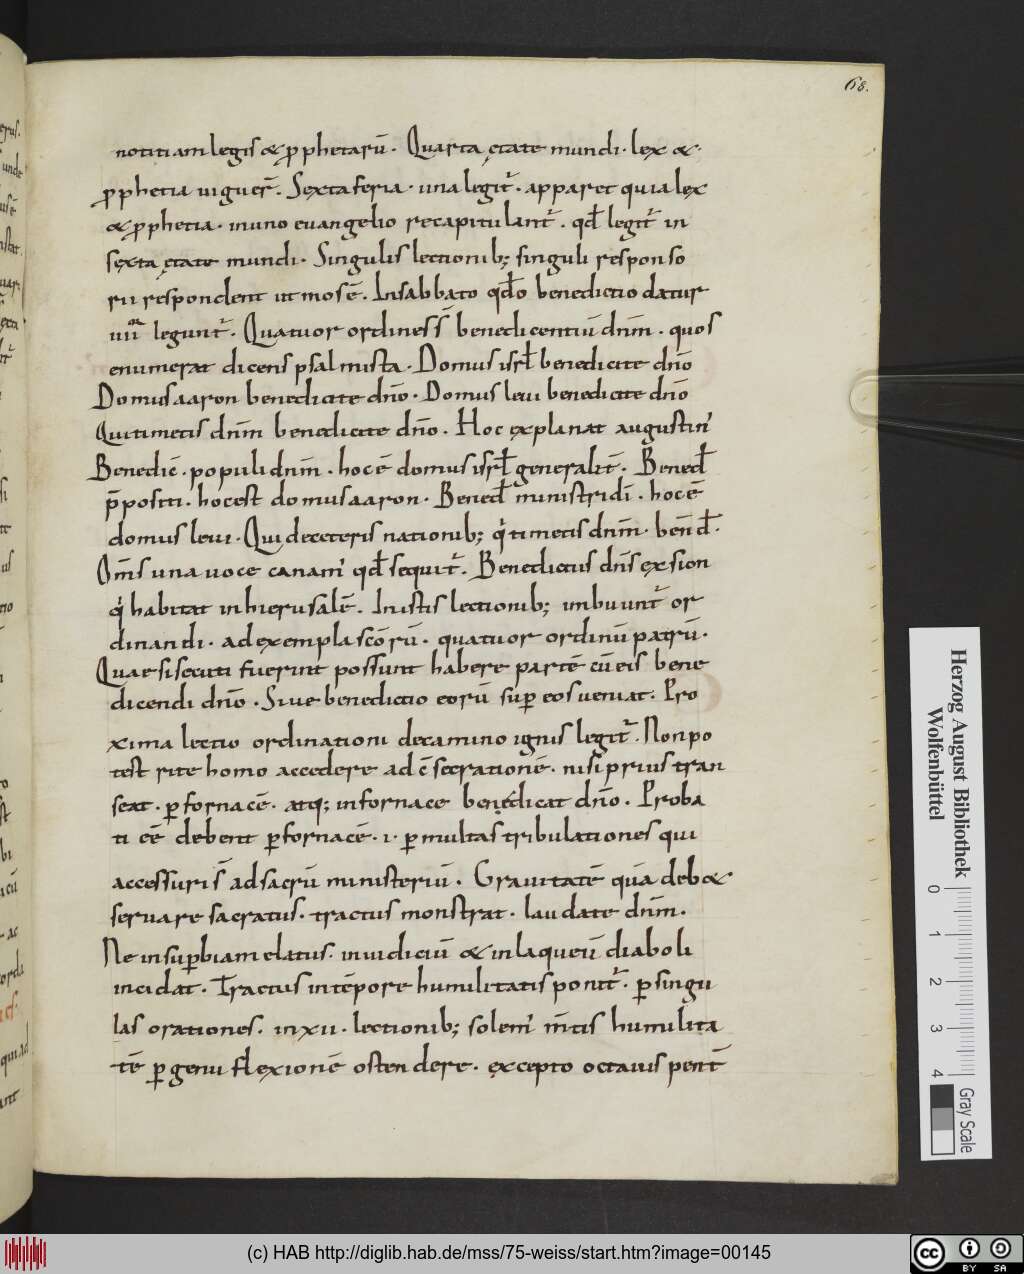 68.
notitiam legis & prophetarū. Quarta ętate mundi. lex &
prophetia uiguer̄. Sexta feria. una legit̄. apparet quia lex
& prophetia. in uno euangelio recapitulant̄. qđ legit̄ in
sexta ętate mundi. Singulis lectionib; singuli responso
rii respondent ut mos ē. In sabbato qđo benedictio datur
uiii legunt̄. Quatuor ordines s̄ benedicentiū dnm̄. quos
enumerat dicens psalmista. Domus isrł benedicite dnō
Domus aaron benedicite dnō. Domus leui benedicite dnō
Qui timetis dnm̄ benedicite dnō. Hoc explanat augustin'
Benedic̄. populi dnm̄. hoc ē domus isrł generalit̄. Bened̄
p̄positi. hoc est domus aaron. Bened̄ ministri dī. hoc ē
domus leui. Qui de ceteris nationib; q' timetis dnm̄. bened̄.
Om̄s una uoce canam' qđ sequit̄. Benedictus dn̄s ex sion
q' habitat in hierusalē. In istis lectionib; imbuunt̄ or
dinandi. ad exempla scōrū. quatuor ordinū patrū.
Quae si secuti fuerint possunt habere partē cū eis bene
dicendi dnō. Siue benedictio eorū sup eos ueniat. Pro
xima lectio ordinationi de camino ignis legit̄. Non po
test rite homo accedere ad c̄secrationē. nisi prius tran
seat. p fornacē. atq; in fornace benedicat dnō. Proba
ti eē debent p fornacē. i. p multas tribulationes qui
accessuri s̄ ad sacrū ministeriū. Grauitatē quā deb&
seruare sacratus. tractus monstrat. laudate dnm̄.
Ne in supbiam elatus. in iudiciū & in laqueū diaboli
incidat. Tractus in tēpore humilitatis ponit̄. p singu
las orationes. in xii. lectionib; solem' m̄tis humilita
tē p genu flexionē ostendere. excepto octauis pent̄
Herzog August Bibliothek
Wolfenbüttel
0 1 2 3 4
Gray Scale
(c) HAB http://diglib.hab.de/mss/75-weiss/start.htm?image=00145
cc BY SA